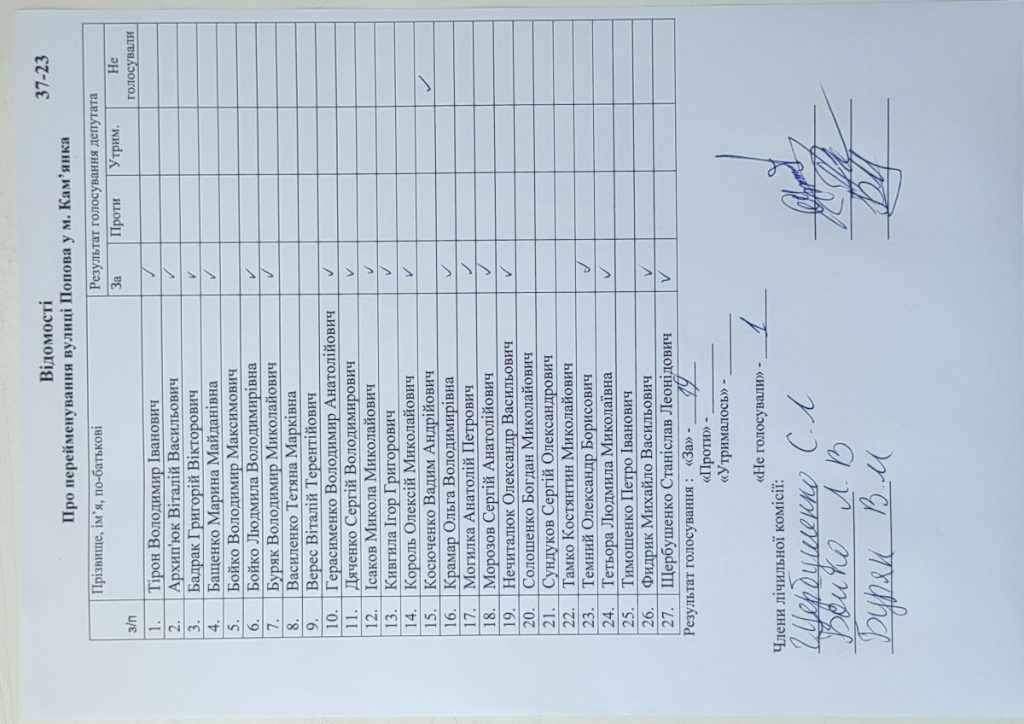 Відомості 37-23
Про перейменування вулиці Попова у м. Кам’янка
з/п Прізвище, ім’я, по-батькові Результат голосування депутата
За Проти Утрим. Не голосували
1. Тірон Володимир Іванович ✓
2. Архип’юк Віталій Васильович ✓
3. Бадрак Григорій Вікторович ✓
4. Бащенко Марина Майданівна ✓
5. Бойко Володимир Максимович
6. Бойко Людмила Володимирівна ✓
7. Буряк Володимир Миколайович ✓
8. Василенко Тетяна Марківна
9. Верес Віталій Терентійович
10. Герасименко Володимир Анатолійович ✓
11. Дяченко Сергій Володимирович ✓
12. Ісаков Микола Миколайович ✓
13. Кивгила Ігор Григорович ✓
14. Король Олексій Миколайович ✓
15. Косюченко Вадим Андрійович ✓
16. Крамар Ольга Володимирівна ✓
17. Могилка Анатолій Петрович ✓
18. Морозов Сергій Анатолійович ✓
19. Нечиталюк Олександр Васильович ✓
20. Солошенко Богдан Миколайович
21. Сундуков Сергій Олександрович
22. Тамко Костянтин Миколайович
23. Темний Олександр Борисович ✓
24. Тетьора Людмила Миколаївна ✓
25. Тимошенко Петро Іванович
26. Фидрик Михайло Васильович ✓
27. Щербушенко Станіслав Леонідович ✓
Результат голосування : «За» - 19
«Проти» -
«Утрималось» -
«Не голосували» - 1
Члени лічильної комісії:
Щербушенко С.Л
Бойко Л.В
Буряк В.М